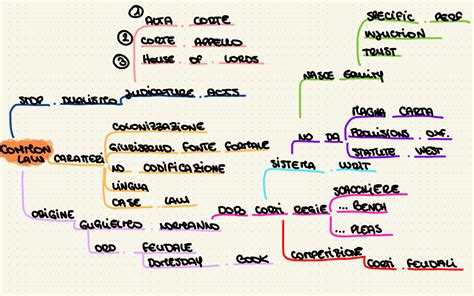 ① ALTA CORTE
② CORTE APPELLO
③ HOUSE OF LORDS
STOP DUALISMO JUDICATURE ACTS
COMMON LAW
CARATERI
COLONIZZAZIONE
GIURISPRUD. FONTE FORMALE
NO CODIFICAZIONE
LINGUA
CASE LAW
ORIGINE
GUGLIELMO NORMANNO
ORD FEUDALE
DOMESDAY BOOK
DOPO CORTI REGIE
SCACCHIERE
... BENCH
... PLEAS
COMPETIZIONE
CORTI FEUDALI
SISTEMA WRIT
NO DA
MAGNA CARTA
PROVISIONS OXF.
STATUTE WEST
NASCE EQUITY
SPECIFIC PERF
INJUCTION
TRUST